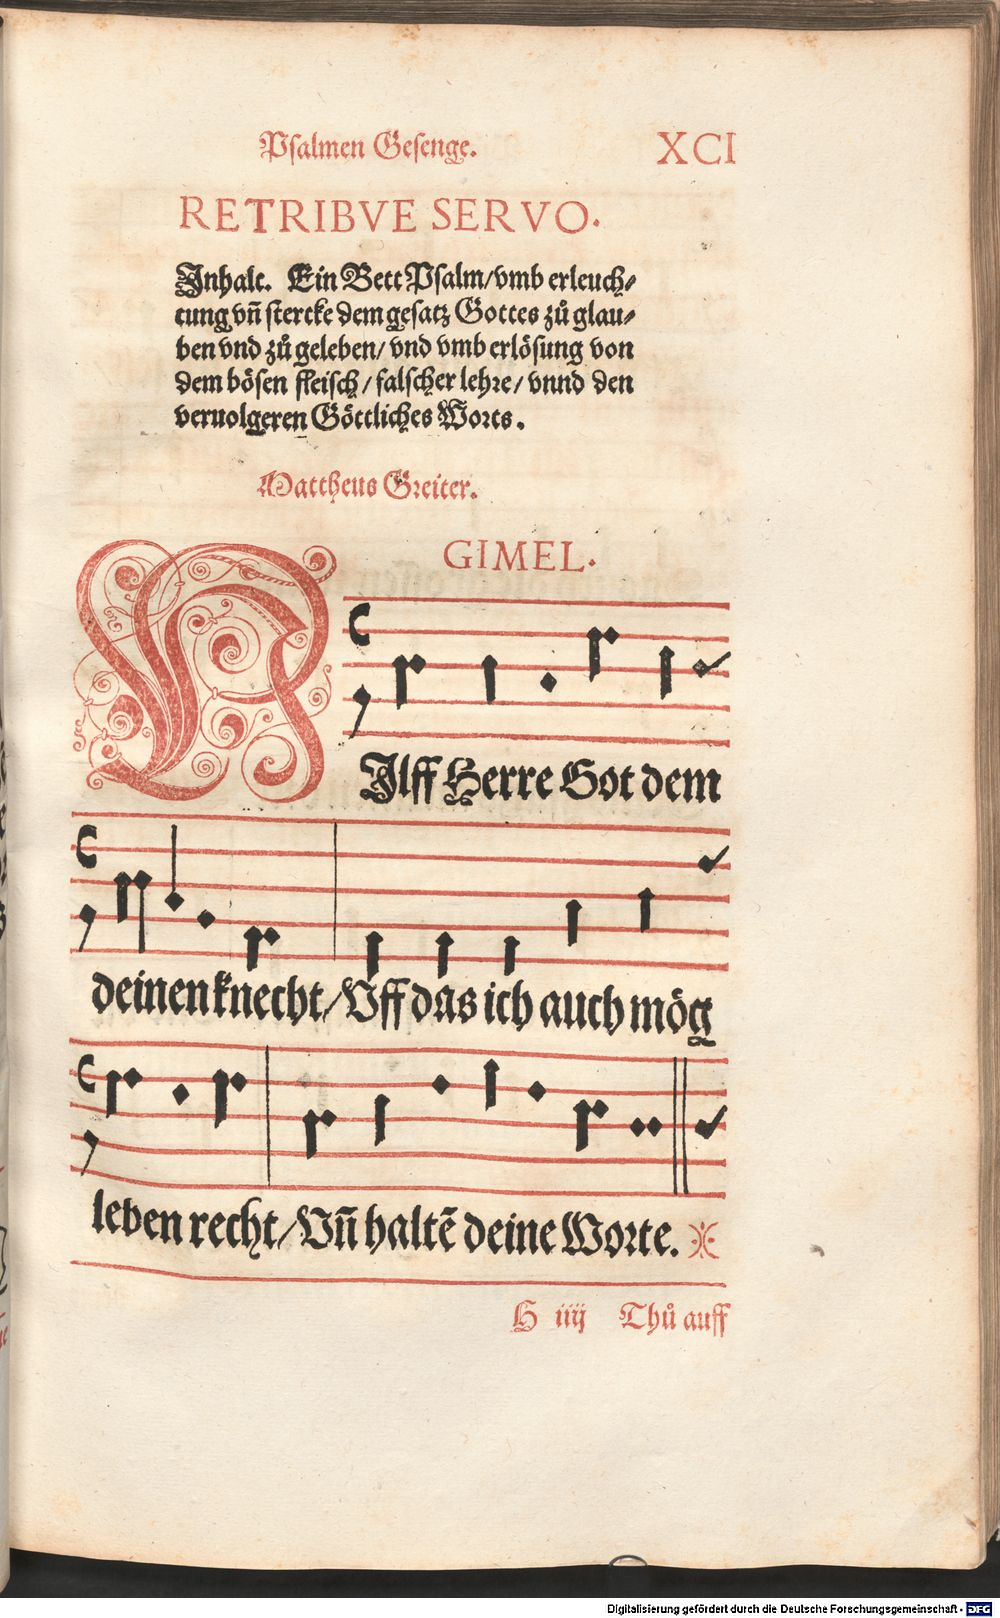 Psalmen Gesenge. XCI
RETRIBVE SERVO.
Inhalt. Ein Bett Psalm/vmb erleuch⸗
tung vñ stercke dem gesatz Gottes zů glau⸗
ben vnd zů geleben/ vnd vmb erlösung von
dem bösen fleisch/ falscher lehre/ vnnd den
veruolgeren Göttliches Worts.
Mattheus Greiter.
GIMEL.
HIlff Herre Got dem
deinen knecht/ Vff das ich auch mög
leben recht/ Vñ haltē deine Worte.
H iiij Thů auff
Digitalisierung gefördert durch die Deutsche Forschungsgemeinschaft - DFG